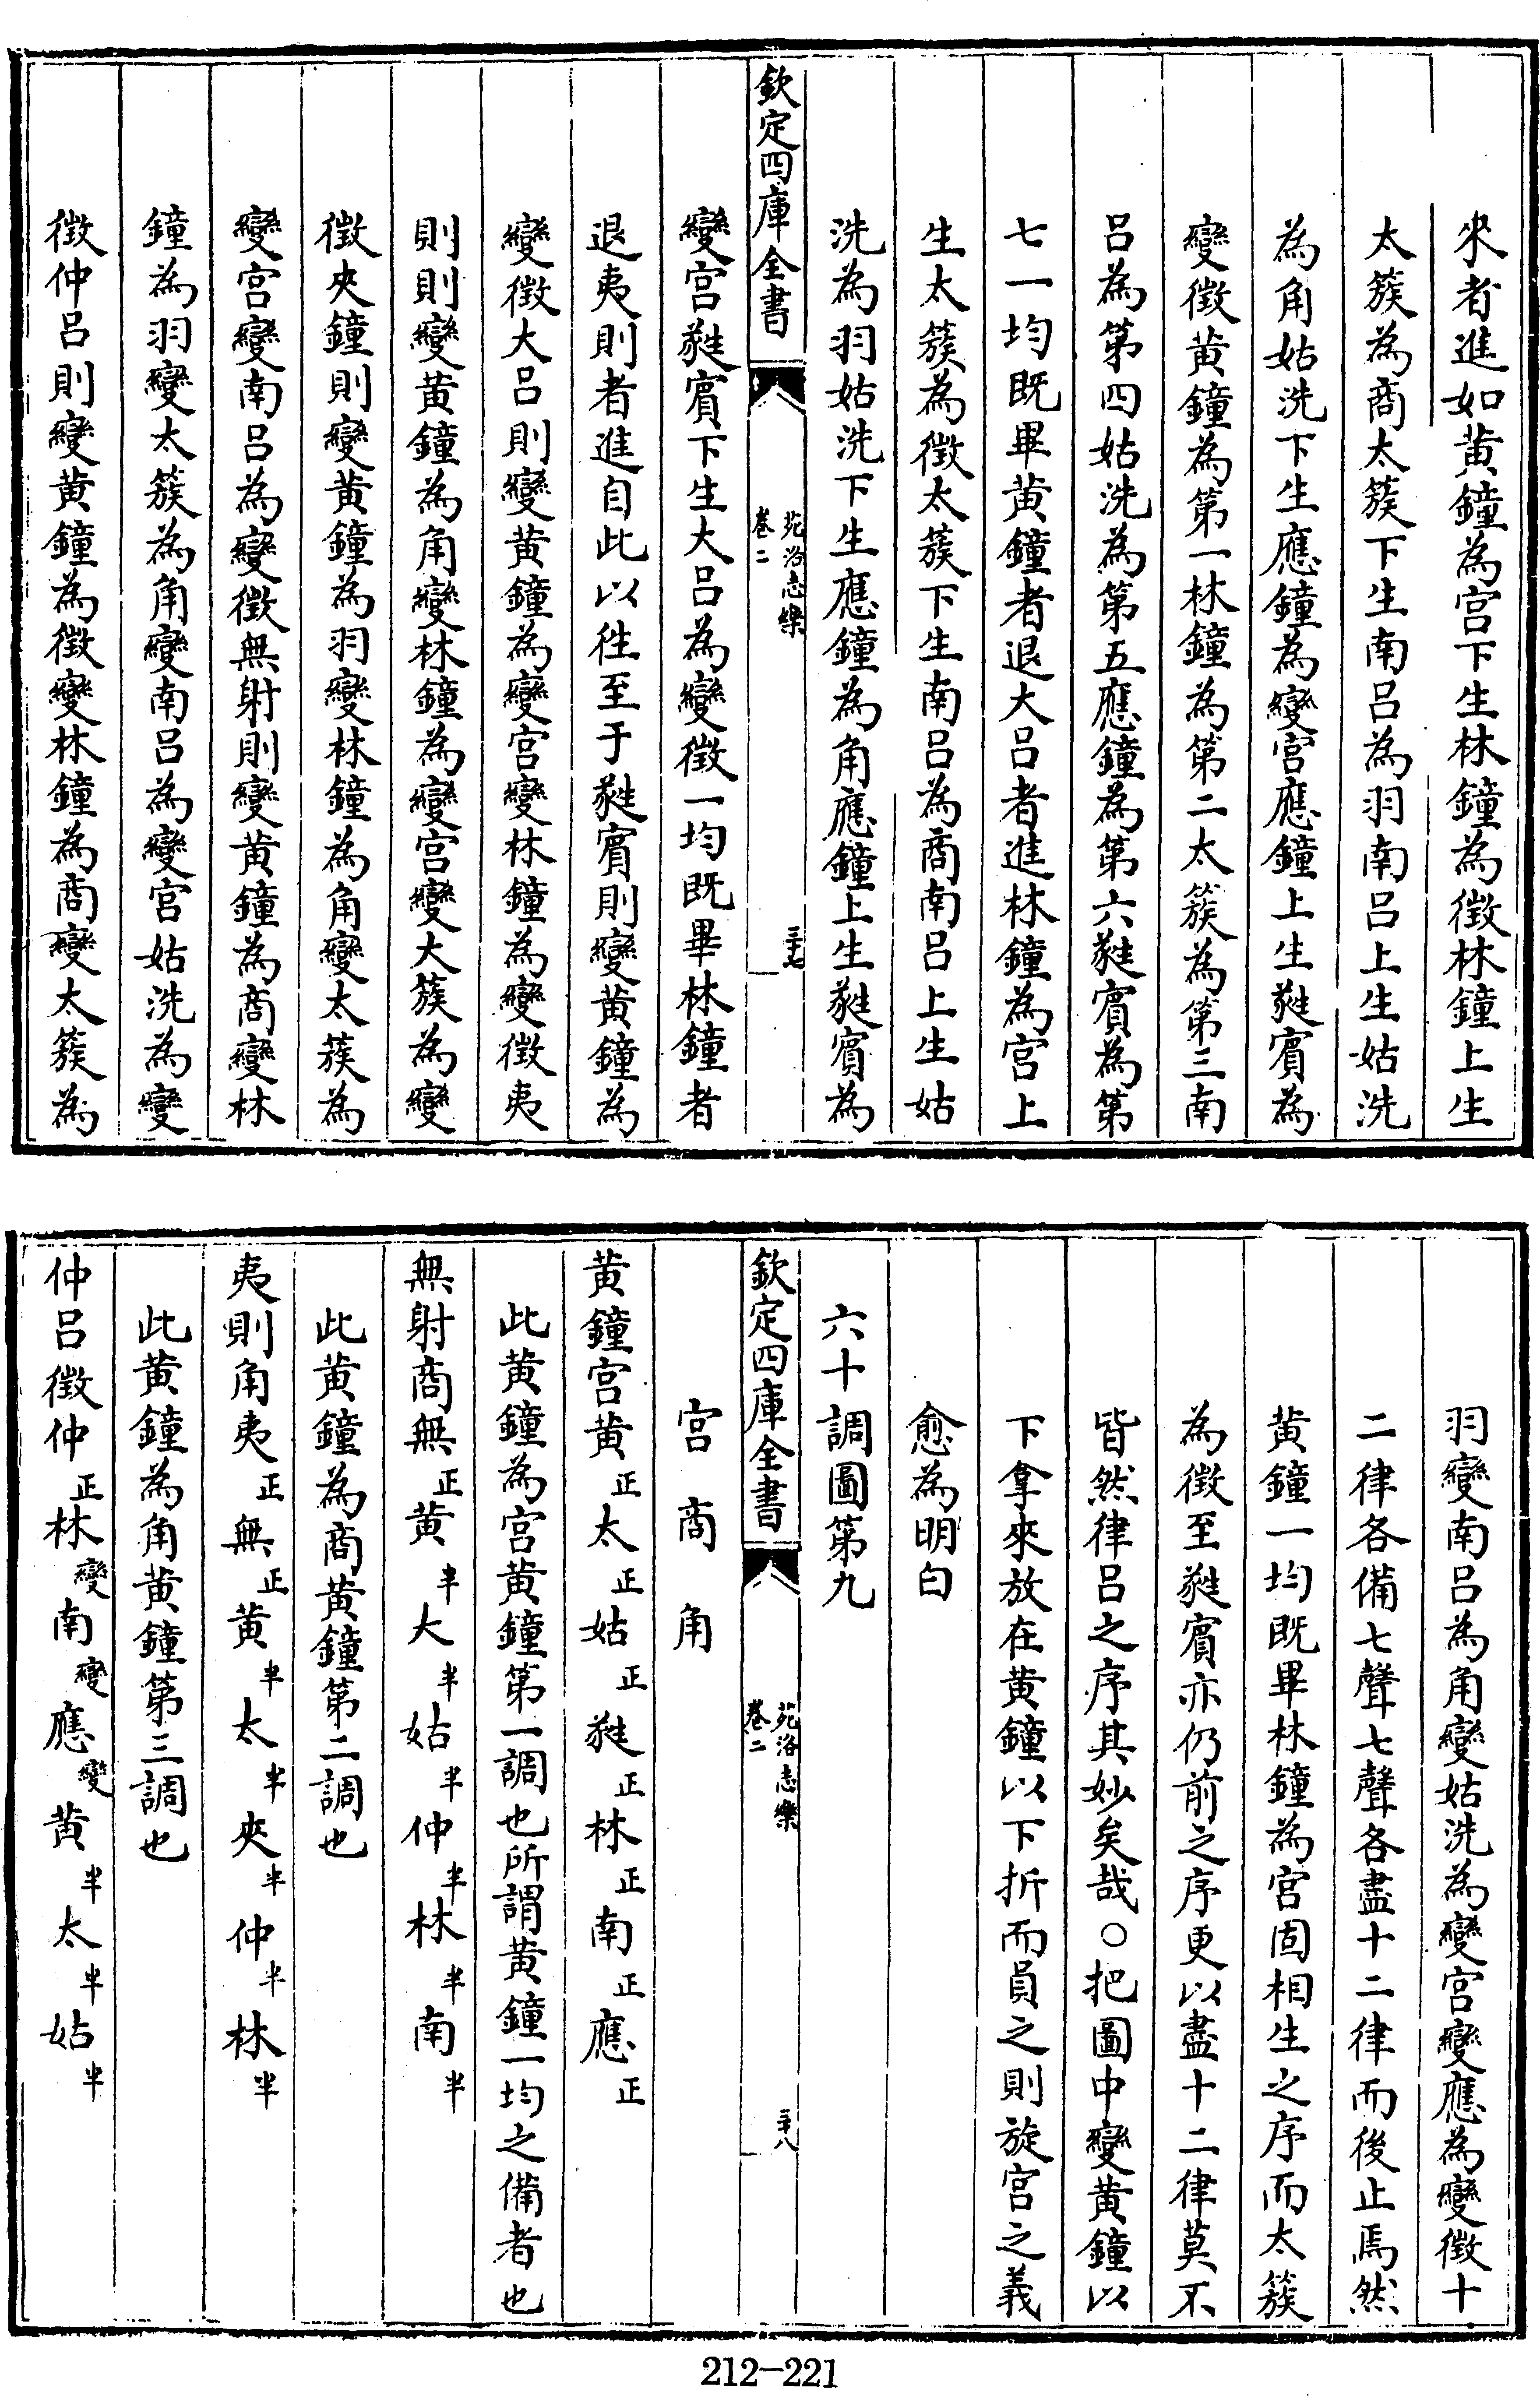 來者進如黄鐘為宫下生林鐘為徴林鐘上生
太簇為商太簇下生南吕為羽南吕上生姑洗
為角姑洗下生應鐘為變宫應鐘上生蕤賓為
變徴黄鐘為第一林鐘為第二太簇為第三南
吕為第四姑洗為第五應鐘為第六蕤賓為第
七一均既畢黄鐘者退大吕者進林鐘為宫上
生太簇為徴太簇下生南吕為商南吕上生姑
洗為羽姑洗下生應鐘為角應鐘上生蕤賓為
欽定四庫全書
苑洛志樂
卷二
三十七
變宫蕤賓下生大吕為變徴一均既畢林鐘者
退夷則者進自此以徃至于蕤賓則變黄鐘為
變徴大吕則變黄鐘為變宫變林鐘為變徴夷
則則變黄鐘為角變林鐘為變宫變大簇為變
徴夾鐘則變黄鐘為羽變林鐘為角變太蔟為
變宫變南吕為變徴無射則變黄鐘為商變林
鐘為羽變太簇為角變南吕為變宫姑洗為變
徴仲吕則變黄鐘為徴變林鐘為商變太簇為
羽變南吕為角變姑洗為變宫變應為變徴十
二律各備七聲七聲各盡十二律而後止焉然
黄鐘一均既畢林鐘為宫固相生之序而太簇
為徴至蕤賓亦仍前之序更以盡十二律莫不
皆然律吕之序其妙矣哉○把圖中變黄鐘以
下拿來放在黄鐘以下折而員之則旋宫之義
愈為明白
六十調圖第九
欽定四庫全書
苑洛志樂
卷二
三十八
宫商角
黄鐘宫黄正太正姑正蕤正林正南正應正
此黄鐘為宫黄鐘第一調也所謂黄鐘一均之備者也
無射商無正黄半大半姑半仲半林半南半
此黄鐘為商黄鐘第二調也
夷則角夷正無正黄半太半夾半仲半林半
此黄鐘為角黄鐘第三調也
仲吕徴仲正林變南變應變黄半太半姑半
212-221